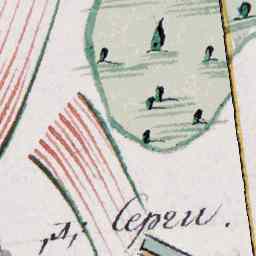 ,д, Серги.